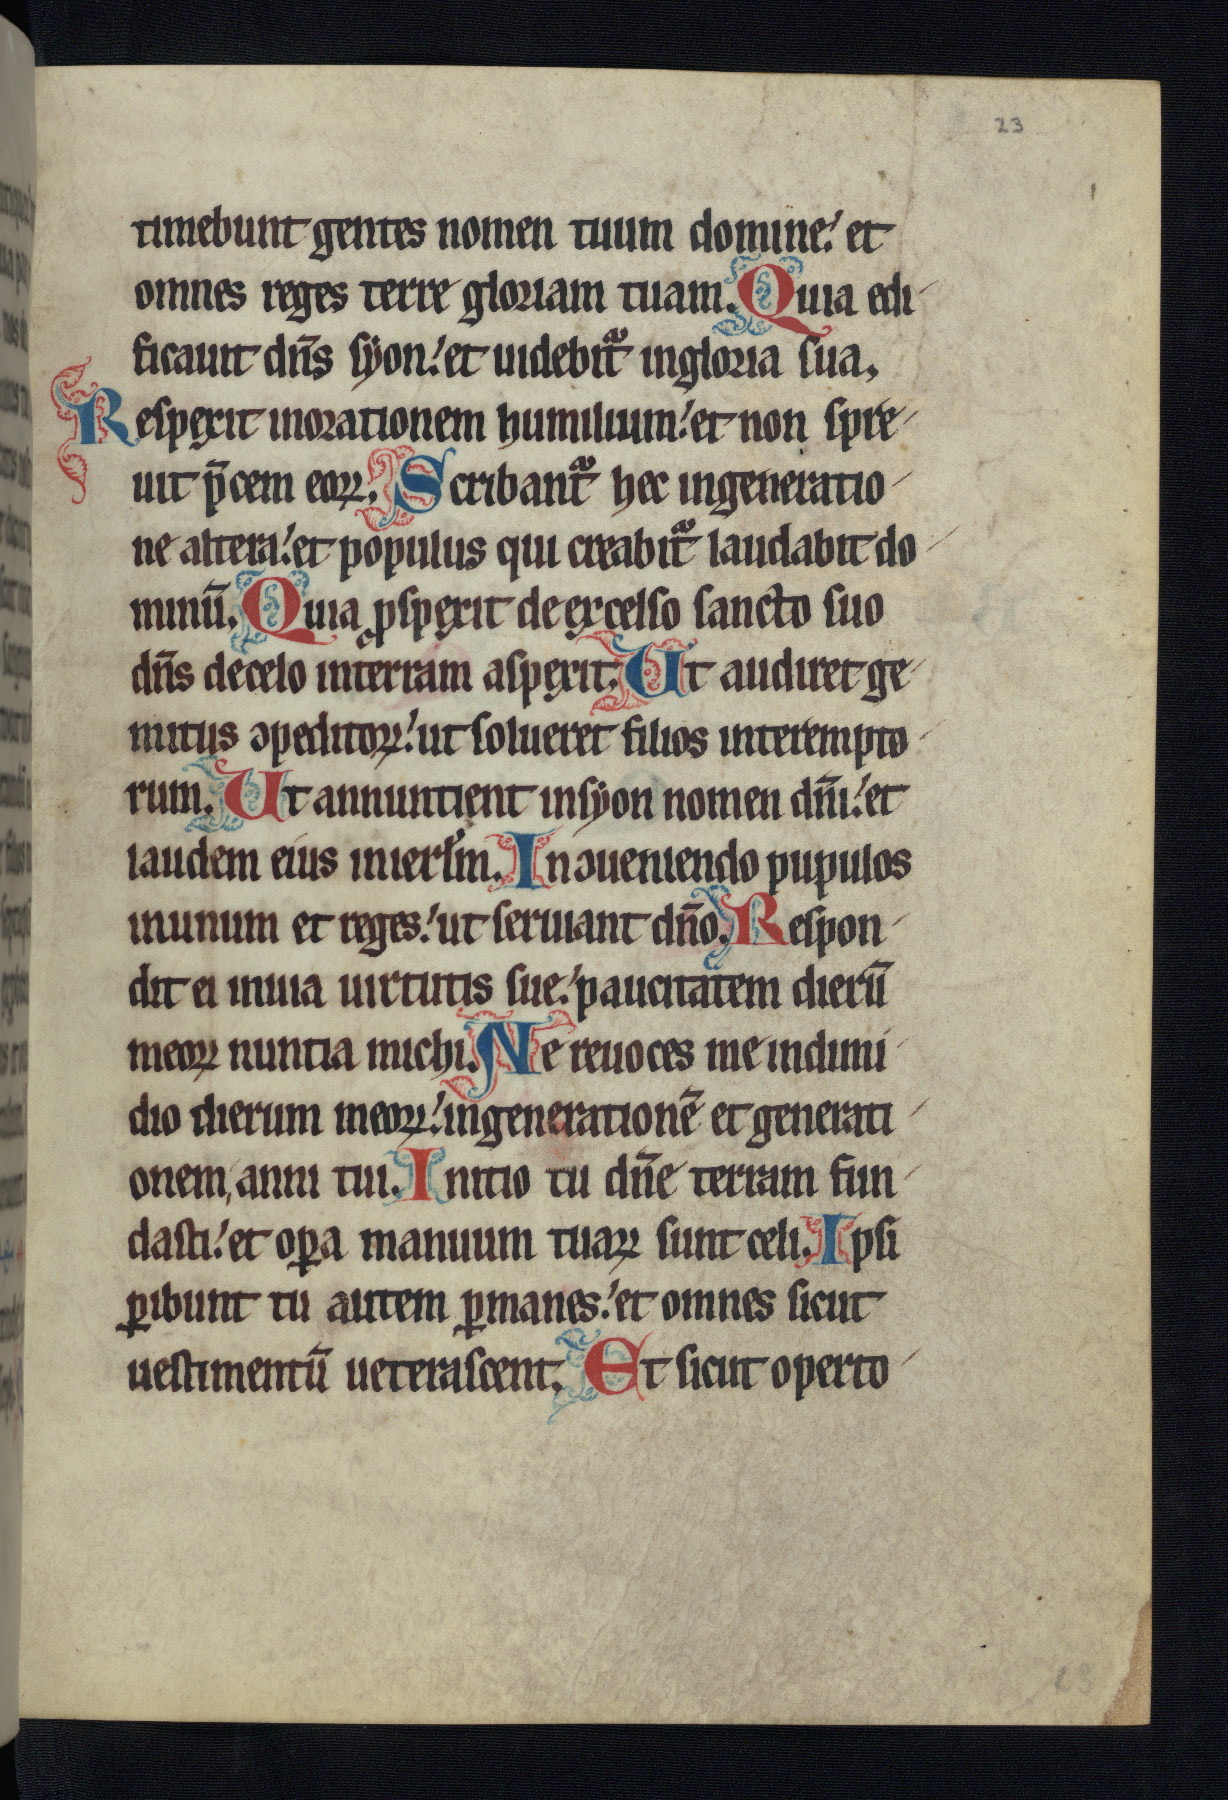 23
timebunt gentes nomen tuum domine: et
omnes reges terre gloriam tuam. Quia edi-
ficauit dn̄s syon: et uidebit᷑ ingloria sua.
Respexit inorationem humilium: et non spre-
uit p̄cem eoꝝ. Scribant᷑ hec ingeneratio-
ne altera: et populus qui creabit᷑ laudabit do-
minū. Quia ꝓspexit de excelso sancto suo
dn̄s decelo interram aspexit. Ut audiret ge-
mitus ꝯpeditoꝝ: ut solueret filios interempto-
rum. Ut annuntient insyon nomen dn̄i: et
laudem eius inierl̄m. In ꝯueniendo pupulos
inunum et reges: ut seruiant dn̄o. Respon-
dit ei inuia uirtutis sue: paucitatem dierū
meoꝝ nuntia michi. Ne reuoces me indimi-
dio dierum meoꝝ: ingenerationē et generati-
onem, anni tui. Initio tu dn̄e terram fun-
dasti: et oꝑa manuum tuaꝝ sunt celi. Ipsi
ꝑibunt tu autem ꝑmanes: et omnes sicut
uestimentū ueterascent. Et sicut operto-
23